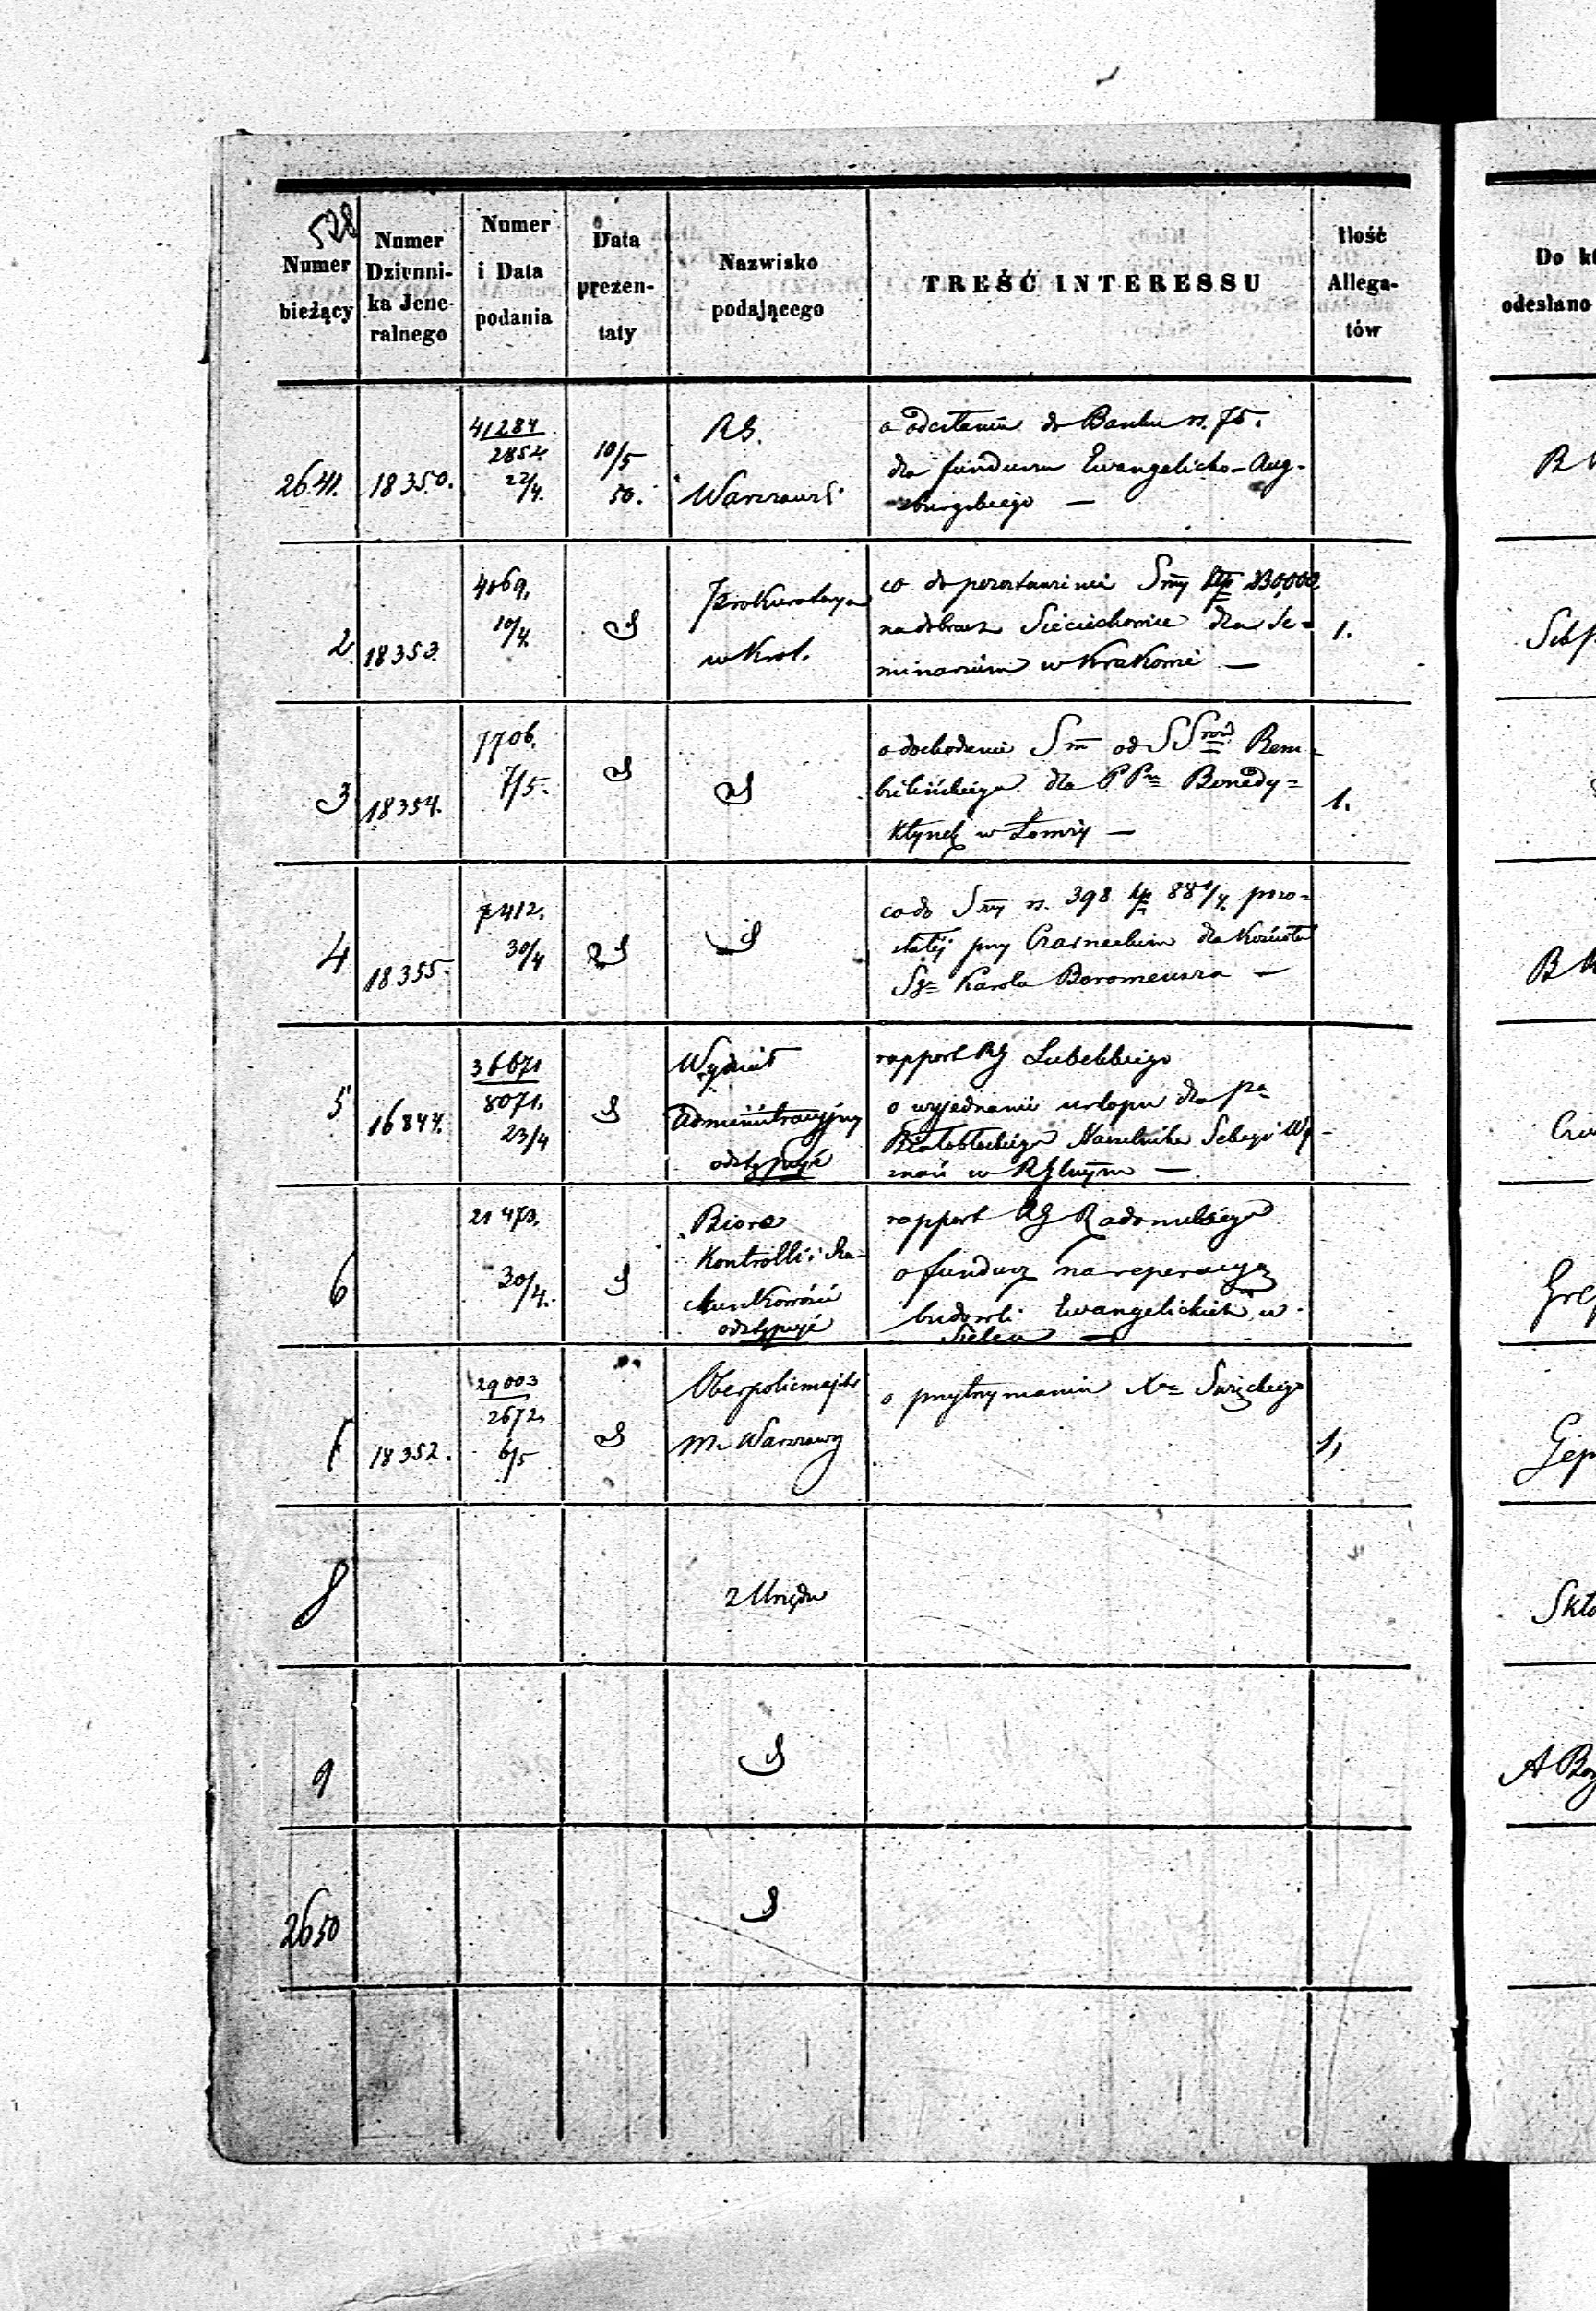 528
Numer bieżący
Numer Dzienni-ka Jene-ralnego
Numer i Data podania
Data prezen-taty
Nazwisko podającego
TREŚĆ INTERESSU
Ilość Allega-tów
Do
odesłano
2641. 18350. 41284 2852 22/4. 10/5 50. RG. Warszaws
o odesłaniu do Banku rs. 75.
dla funduszu Ewangelicko-Aug-
sburgskiego —
2. 18353. 4069. 10/4. Prokuratorya w Krol.
co do pozostawienia Smy
na dobrach Sieciechowice dla Se-
minarium w Krakowie — 1.
3 18354. 7706. 7/5.
o dochodzeniu Sm od SSrów Rem-
bielińskiego dla PPn Benedy=
ktynek w Łomży — 1.
4 18355. 7412. 30/4
co do Smy rs. 398 kp 88 1/4. pozo=
stałej przy Czarneckim dla Kościoła
Sgo Karola Boromeusza —
5 16844. 36671 8071. 23/4 Wydział Administracyjny odstępuje
rapport RG Lubelskiego
o wyjednanie urlopu dla pa
Białobłockiego Naczelnika Sekcyi Wy-
znań w RGlnym —
6 21473. 30/4. Biuro Kontrolli i Ra-chunkowości odstępuje
rapport RG Radomskiego
o fundusz na reperacyą
budowli Ewangelickich w
Sielcu —
7 18352. 29003 2672. 6/5 Oberpolicmajstr m. Warszawy
o przytrzymaniu Xa Święckiego 1,
8 z Urzędu
9
2650